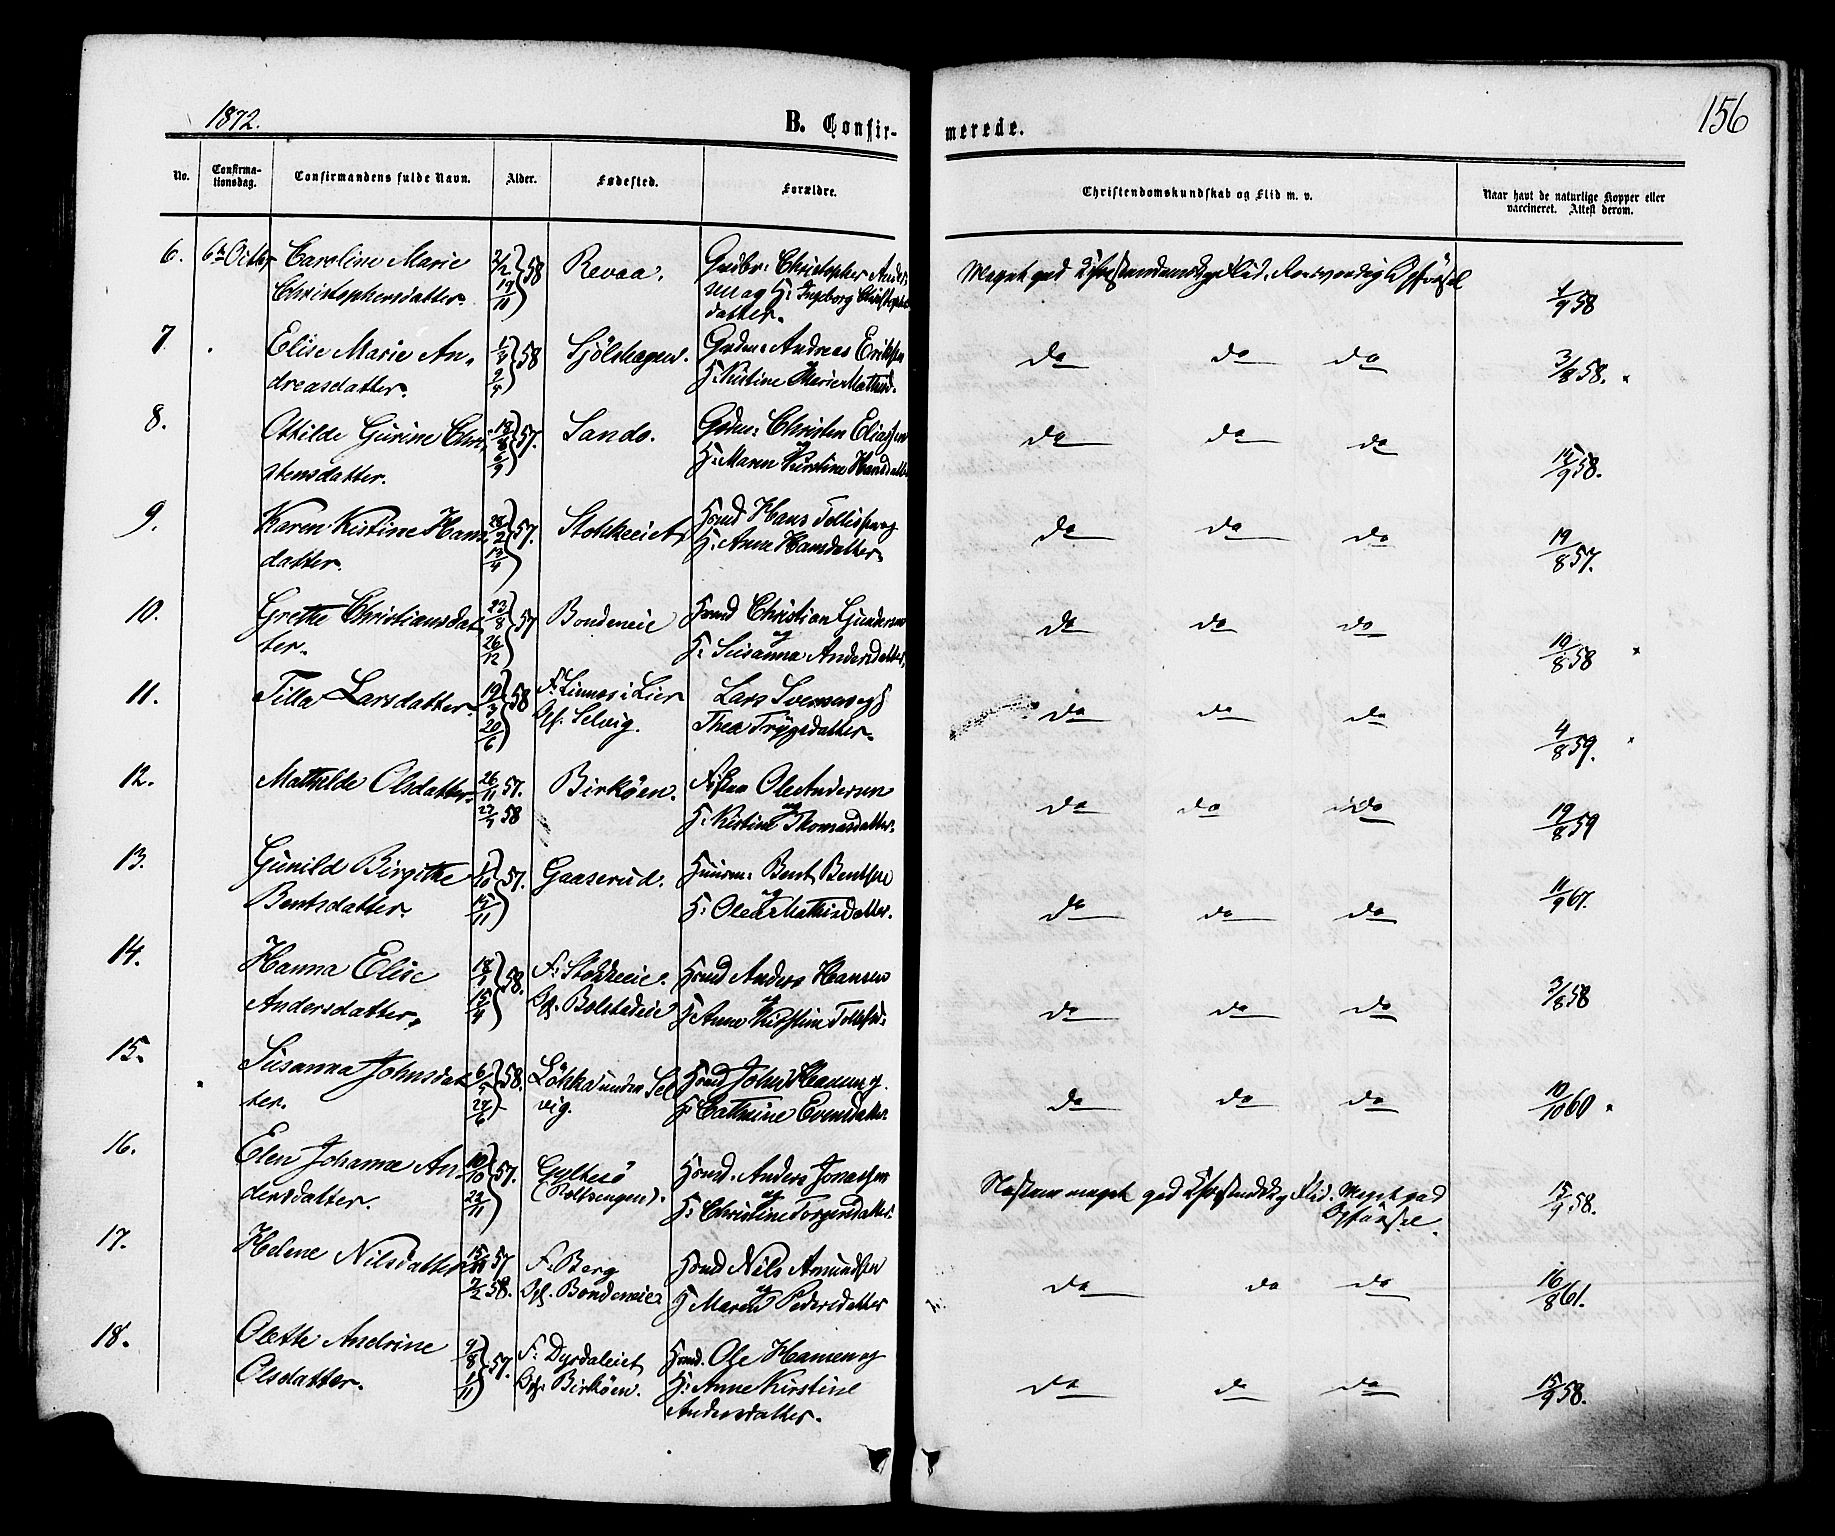 1872.
B. Confir-
merede.
156
No.
Confirma-
tionsdag.
Confirmandens fulde Navn.
Alder.
Fødested.
Forældre.
Christendomskundskab og Flid m. v.
Naar havt de naturlige Kopper eller
vaccineret. Attest derom.
6.
Caroline Marie
Christophersdatter.
2/2
19/11
58
Revaa.
Christopher Anders
sen og H: Ingeborg Christophers
datter.
Meget god Flid.
58
7.
Elise Marie An-
dreasdatter.
58
Sjölshagen.
Andreas Eriksen
H: Kistine Marie Mathisd.
do do do
3/8 58.
8.
Othilde Gurine Chri
stensdatter.
57.
Sando.
Christen Eliassen
og
H: Maren Kirstine Hansdatter
do do do
58.
9.
Karen Kistine Hans
datter.
28/2
13/4
57.
Stokkeeiet
Hans Tollefsen og
H: Anne Hansdatter.
do do do
19/8 57.
10.
Grethe Christiansdat
ter.
23/8
26/12
57
Bondeneie
Husmd Christian Gundersen
og
H: Susanna Andersdatter.
do do do
19/8 58
11.
Tilla Larsdatter.
19/3
20/6
58
F: Linnes i Lier
Opf. Selvig.
Lars Svensen og H
Thea Trygsdatter.
do do do
4/8 59.
12.
Mathilde Olsdatter.
26/11 57.
58
Birköen.
Ole Andersen
og
H: Kistine Thomasdatter.
do do do
19/8 59
13.
Gunild Birgitte
Bentsdatter.
1/10
15/11
57.
Gaaserud.
Bent Bentsen
og
H: Olea Mathisdatter.
do do do
11/9 67.
14.
Hanna Elise
Andersdatter.
58.
F: Stokkeeie.
Opf. Bolstadeie
Husmd Anders Hansen
og
H: Anne Kirstine Tollefsd.
do do do
3/8 58
15.
Susanna Johnsdat
ter.
58.
Lökka under Sel
vig.
Husmd John Hansen og
H: Cathrine Evensdatter.
do do do
10/10 60
16.
Elen Johanne An-
dersdatter.
10/10
23/11
57.
Gyltesö
(Rolfsengen).
Husmd. Anders Jonassen
og
H: Christine Torgersdatter.
Næsten meget god Flid. Meget god
Opförsel.
15/9 58.
17.
Helene Nilsdatter
57
2/2 58.
F: Berg
Opf. Bondeneie
Husmd Nils Amundsen
og
H Maren Pedersdatter
do do do
16/8 61.
18.
Olette Andrine
Olsdatter.
9/8
1/11
57.
F: Dyrdaleiet
Opf. Birköen.
Husmd. Ole Hansen og
H: Anne Kirstine
Andersdatter.
do do do
15/9 58.